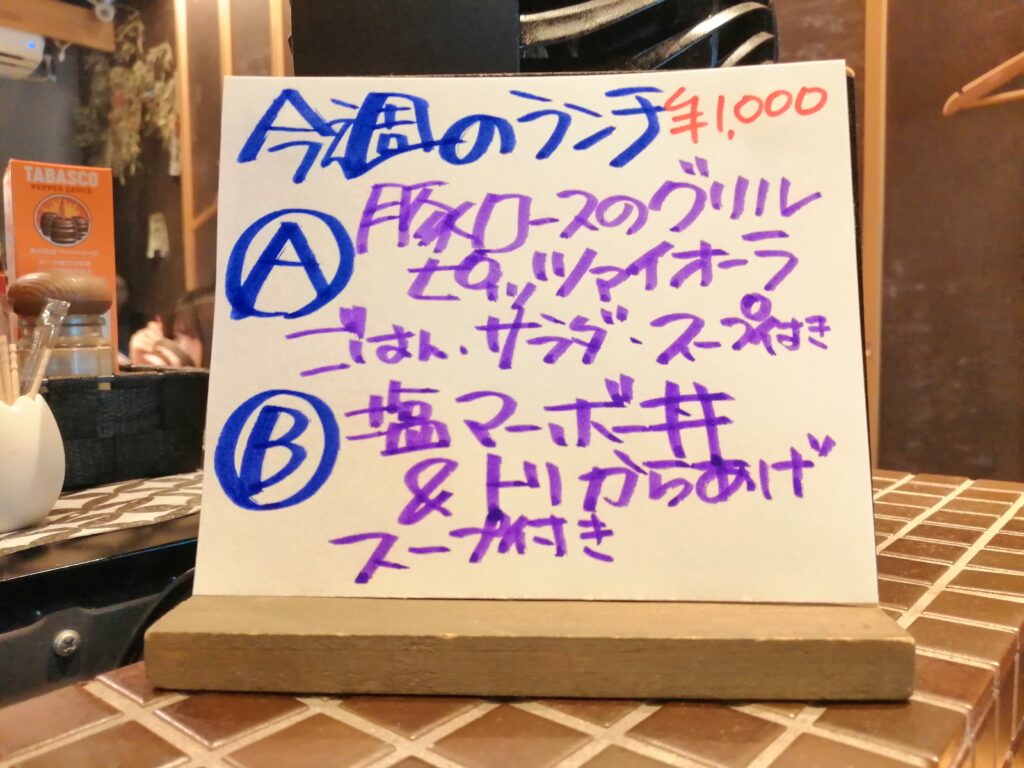 今週のランチ ¥1,000
Ⓐ 豚ロースのグリル
ピッツァイオーラ
ごはん・サラダ・スープ付き
Ⓑ 塩マーボー丼
&トリからあげ
スープ付き
TABASCO
PEPPER SAUCE